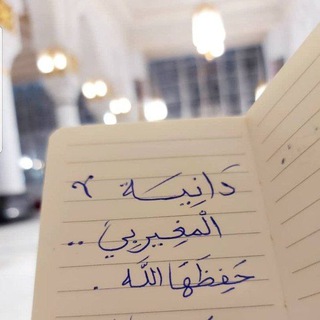 دَانِيَة
الْمغِيرِبِيّ ..
حَفِظَهَا اللَّه .